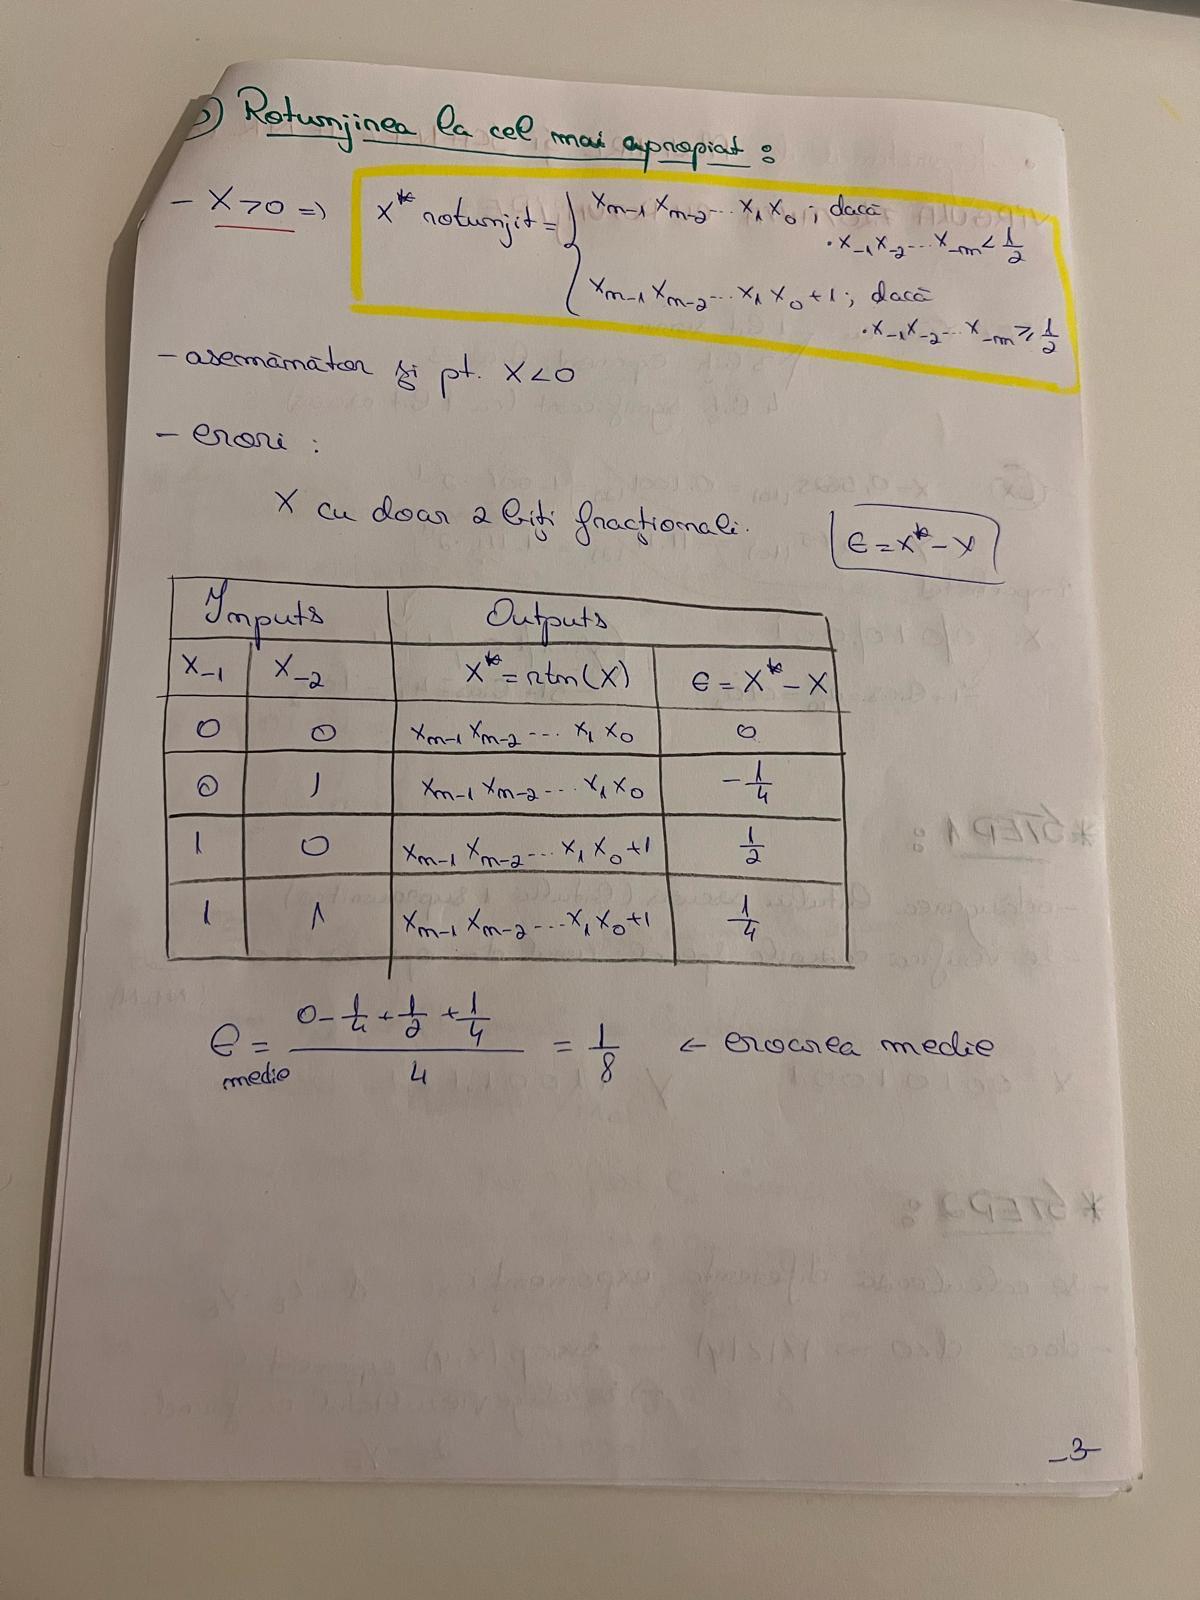 ) Rotunjirea la cel mai apropiat :
- X>0 => X* rotunjit = { Xm-1 Xm-2 ... X1 X0 ; dacă
.X-1 X-2 ... X-m < 1/2
Xm-1 Xm-2 ... X1 X0 +1 ; dacă
.X-1 X-2 ... X-m ≥ 1/2
- asemănător și pt. X<0
- erori :
X cu doar 2 biți fracționali.
ϵ = X* - X
Inputs Outputs
X-1 X-2 X* = rtn(X) ϵ = X* - X
0 0 Xm-1 Xm-2 ... X1 X0 0
0 1 Xm-1 Xm-2 ... X1 X0 -1/4
1 0 Xm-1 Xm-2 ... X1 X0 +1 1/2
1 1 Xm-1 Xm-2 ... X1 X0 +1 1/4
ϵ medie = (0 - 1/4 + 1/2 + 1/4) / 4 = 1/8 ← eroarea medie
-3-